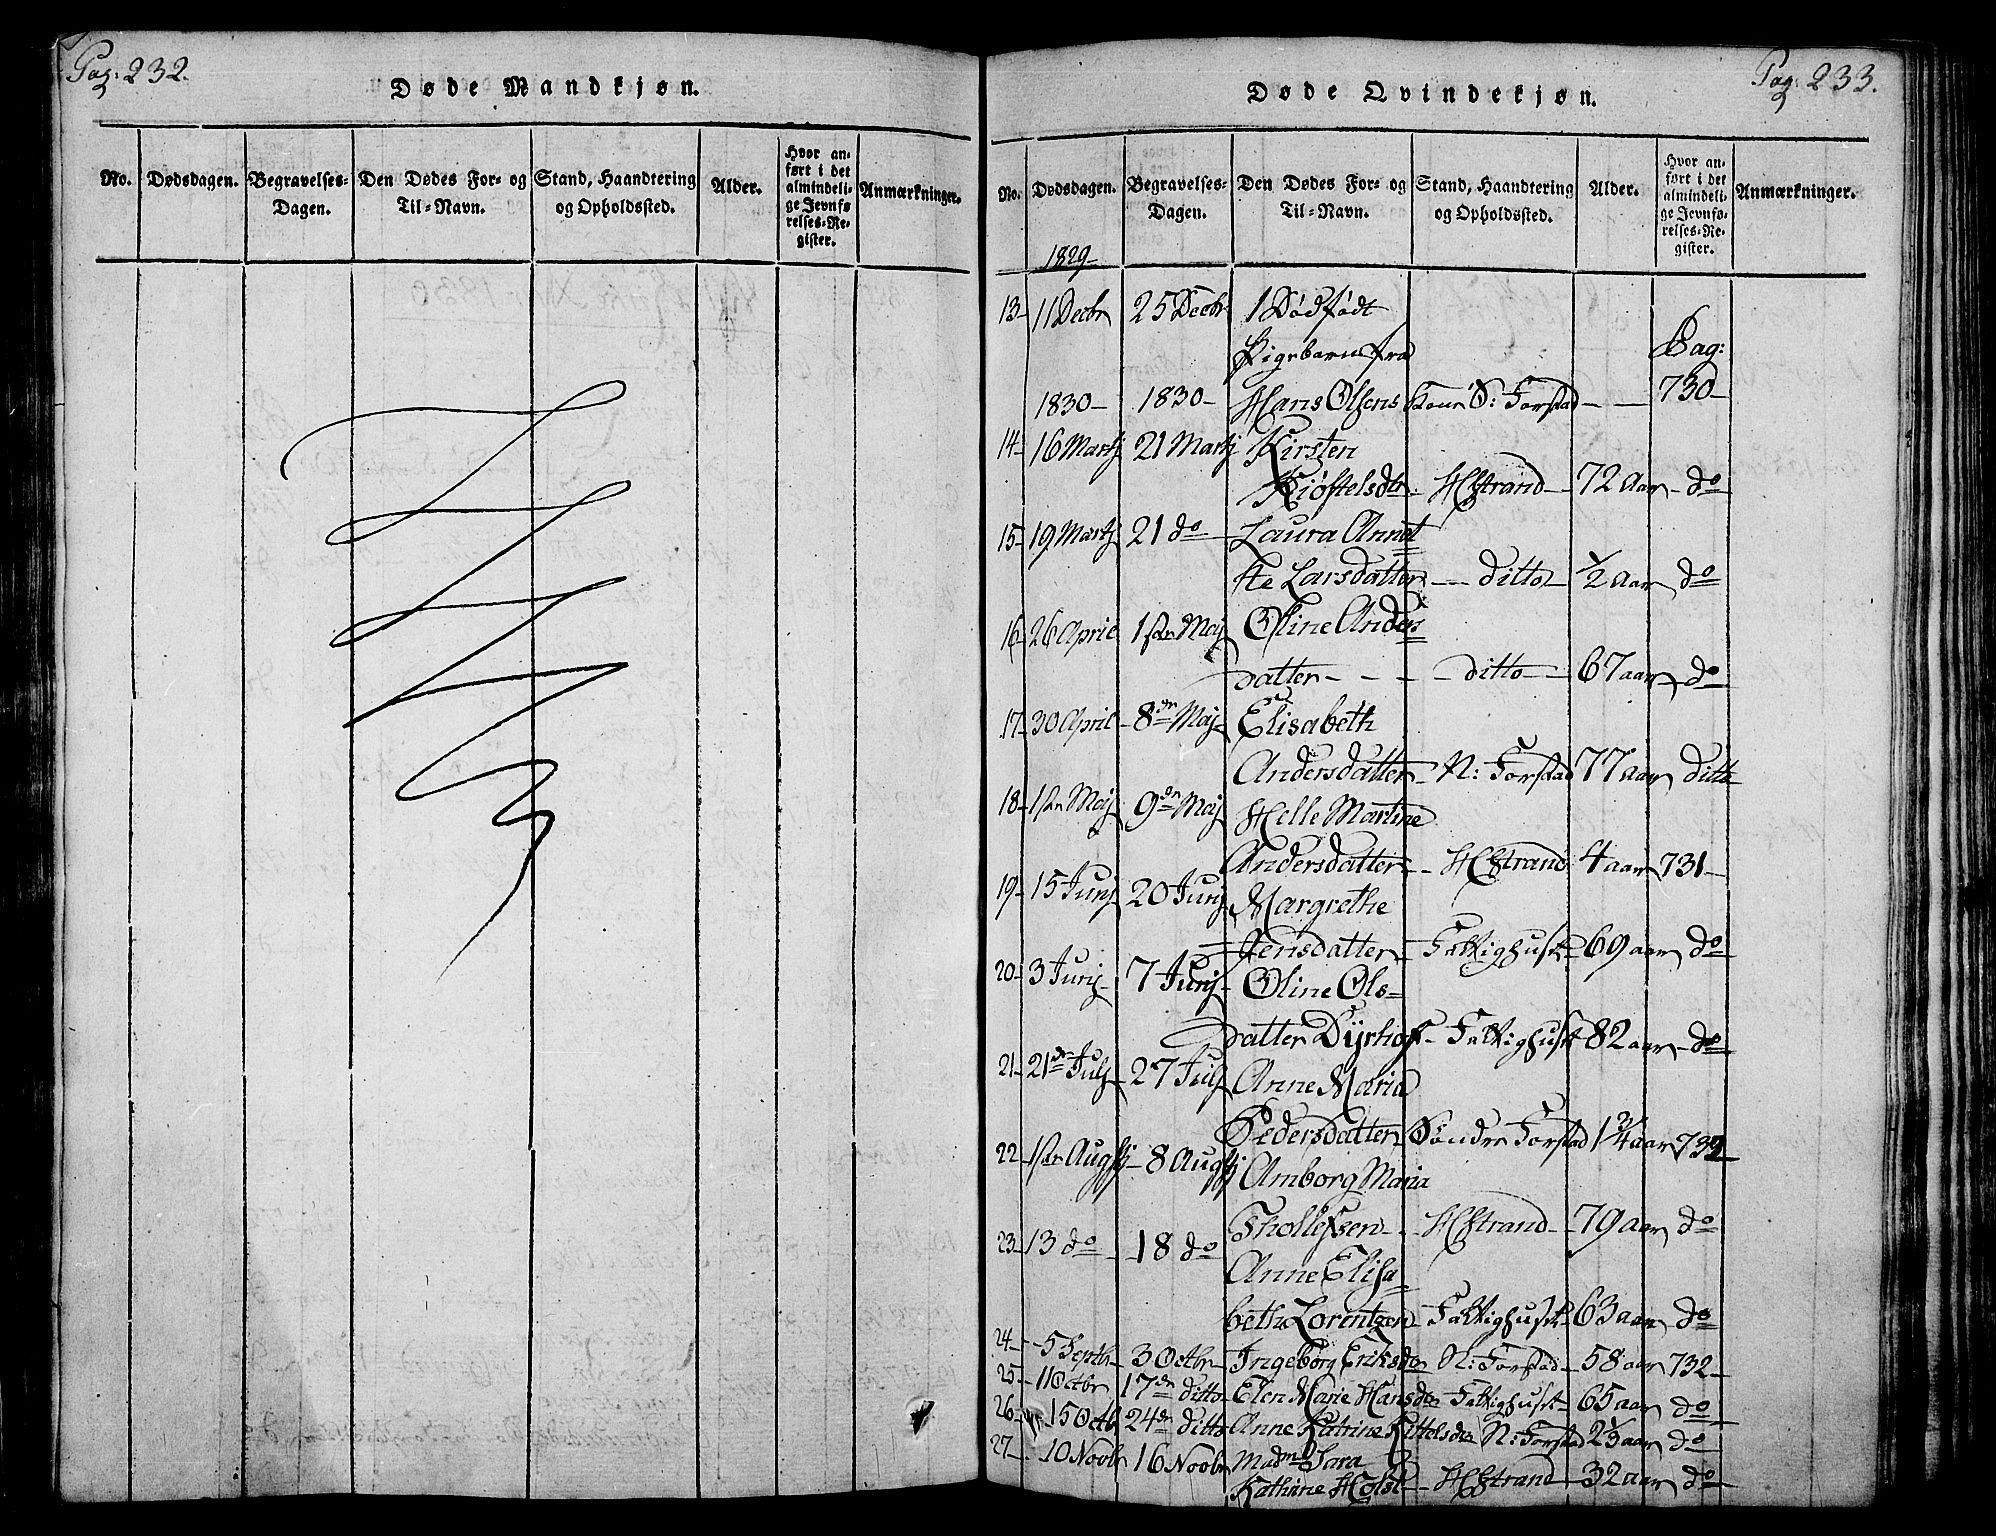 Pag: 232.
Døde Mandkjøn.
No. Dødsdagen. Begravelses-Dagen. Den Dødes For- og Til-Navn. Stand, Haandtering og Opholdssted. Alder. Hvor anført i det almindelige Jevnførelses-Register. Anmærkninger.
Pag: 233.
Døde Qvindekjøn.
No. Dødsdagen. Begravelses-Dagen. Den Dødes For- og Til-Navn. Stand, Haandtering og Opholdssted. Alder. Hvor anført i det almindelige Jevnførelses-Register. Anmærkninger.
1829
13 11 Decbr 25 Decbr 1 Dødfødt
Pigebarn fra Pag:
1830 1830 Hans Olsens Kone S: Forstad 730
14 16 Martj 21 Martj Kirsten
Kiøstelsdtr HStrand 72 Aar do
15 19 Martj 21 do Laura Annet
te Larsdatter ditto 1/2 Aar do
16 26 April 1ste Maj Oline Anders
datter ditto 67 aar do
17 30 April 8de Maj Elisabeth
Andersdatter N: Forstad 77 aar ditto
18 1ste Maj 9de Maj Helle Martine
Andersdatter HStrand 4 aar 731
19 15 Junj 20 Junj Margrethe
Jensdatter Fattighuset 69 aar do
20 3 Junj 7 Junj Oline Ols=
datter Dyrhof Fattighuset 82 aar do
21 21de Julj 27 Julj Anne Maria
Pedersdatter Søndre Forstad 1 3/4 aar 732
22 1ste Augstj 8 Augstj Amborg Maria
Thollefsen HStrand 79 aar do
23 13 do 18 do Anne Elisa=
beth Lorentzen Fattighuset 63 aar do
24 5 Septbr 3 Octbr Ingeborg Eriksdtr N: Forstad 58 aar 732
25 11 Octbr 17de ditto Elen Marie Hansdtr Fattighuset 65 aar do
26 15 Octb 24de ditto Anne Katrine Kittelsdtr N: Forstad aar do
27 10 Novbr 16 Novbr Madm Sara
Kathrine Holst HStrand 32 aar do